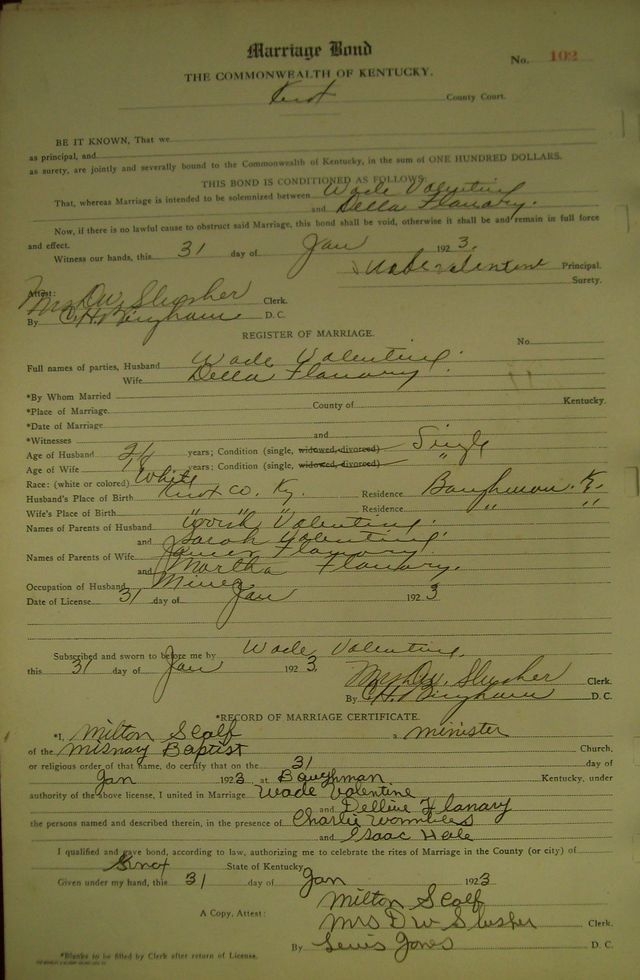 Marriage Bond
No. 102
THE COMMONWEALTH OF KENTUCKY.
Knox County Court.
BE IT KNOWN, That we
as principal, and
as surety, are jointly and severally bound to the Commonwealth of Kentucky, in the sum of ONE HUNDRED DOLLARS.
THIS BOND IS CONDITIONED AS FOLLOWS:
That, whereas Marriage is intended to be solemnized between Wade Valentine
and Della Flanary.
Now, if there is no lawful cause to obstruct said Marriage, this bond shall be void, otherwise it shall be and remain in full force
and effect.
Witness our hands, this 31 day of Jan 1923.
Wade Valentine Principal.
Surety.
Attest:
Mrs D W Slusher Clerk.
By C. H. Bingham D. C.
REGISTER OF MARRIAGE.
No.
Full names of parties, Husband Wade Valentine.
Wife Della Flanary.
*By Whom Married
*Place of Marriage County of Kentucky.
*Date of Marriage
*Witnesses and
Age of Husband years; Condition (single, widowed, divorced) Single
Age of Wife years; Condition (single, widowed, divorced) "
Race: (white or colored) White
Husband's Place of Birth Knox Co. Ky. Residence Baughman Ky.
Wife's Place of Birth " " " Residence " "
Names of Parents of Husband Valentine.
and Sarah Valentine.
Names of Parents of Wife James Flanary.
and Martha Flanary.
Occupation of Husband Miner
Date of License 31 day of Jan 1923
Subscribed and sworn to before me by Wade Valentine.
this 31 day of Jan 1923.
Mrs D W. Slusher Clerk.
By C. H. Bingham D. C.
*RECORD OF MARRIAGE CERTIFICATE.
*I, Milton Scalf a minister
of the Misnay Baptist Church,
or religious order of that name, do certify that on the 31 day of
Jan 1923 at Baughman Kentucky, under
authority of the above license, I united in Marriage Wade Valentine
and Dellie Flanary
the persons named and described therein, in the presence of Charlie Wombles
and Isaac Hale
I qualified and gave bond, according to law, authorizing me to celebrate the rites of Marriage in the County (or city) of
Knox State of Kentucky
Given under my hand, this 31 day of Jan 1923
Milton Scalf
A Copy, Attest: Mrs D W Slusher Clerk.
By Lewis Jones D. C.
*Blanks to be filled by Clerk after return of License.